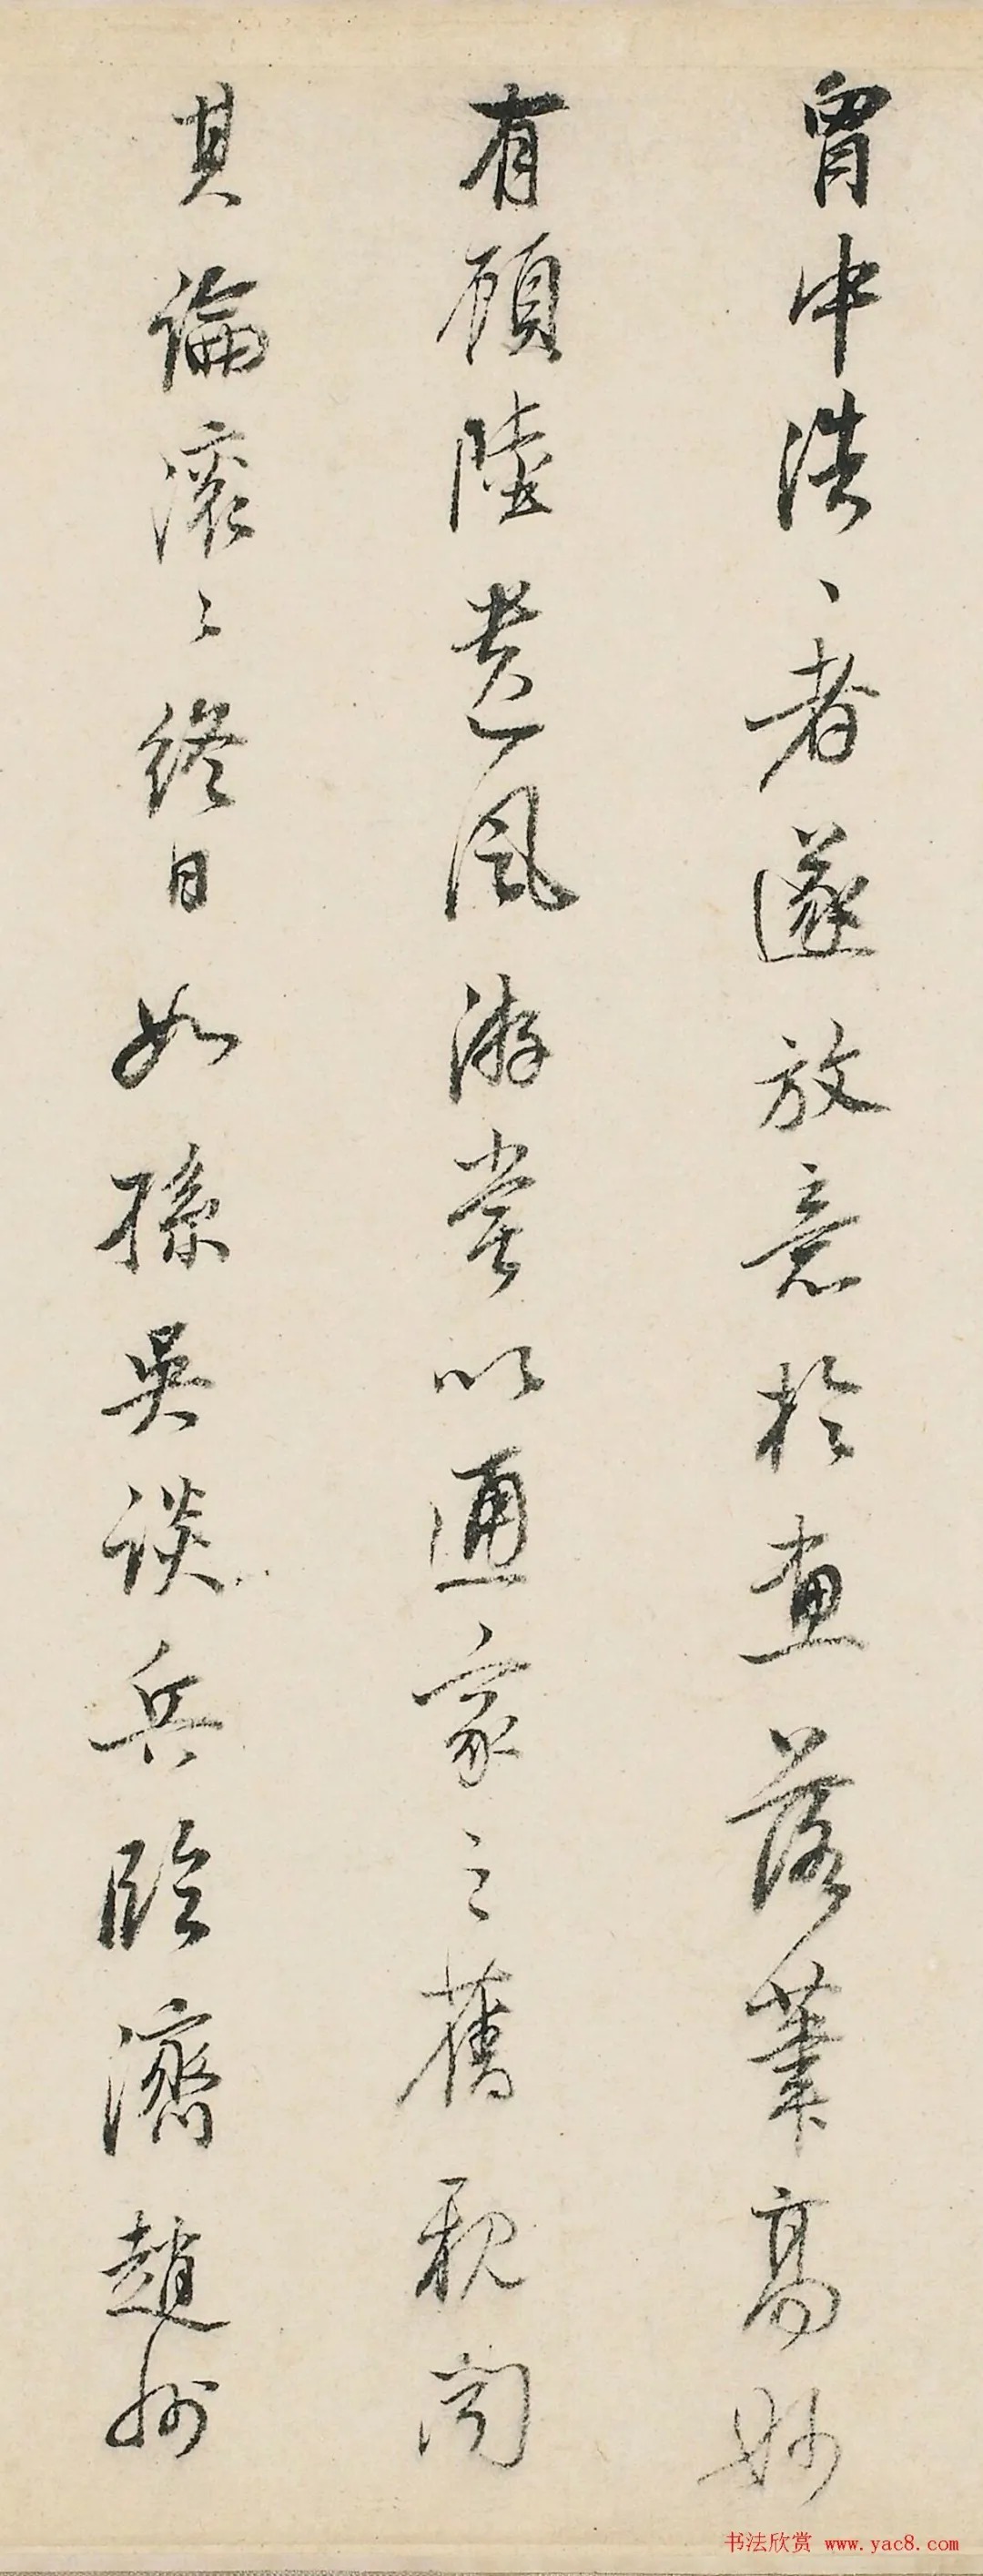 胷中浩、者遂放意於畫落筆高妙
有顧陸遺風游嘗以通家之舊親聞
其論滚〻終日如孫吳談兵臨濟趙州
书法欣赏 www.yac8.com